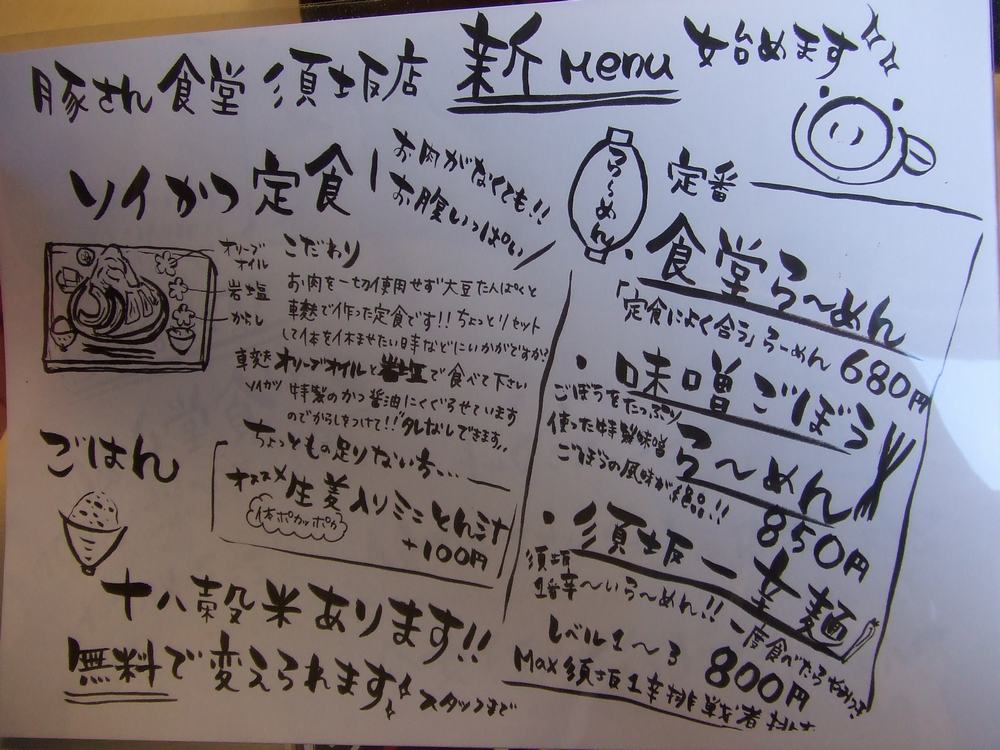 豚さん食堂 須坂店 新Menu 始めます
ソイかつ定食
お肉がなくても!!
お腹いっぱい
オリーブ
オイル
岩塩
からし
こだわり
お肉を一切使用せず大豆たんぱくと
車麩で作った定食です!! ちょっとリセット
して体を休ませたい日などにいかがですか?
車麩をオリーブオイルと岩塩で食べて下さい
ソイカツ 特製のかつ醤油にくぐらせています
のでからしをつけて!! タレなしでできます!!
ちょっともの足りない方…
オススメ 生姜入りミニとん汁
体ポカッポカ
+100円
ごはん
十八穀米あります!!
無料で変えられます
スタッフまで
らーめん
定番
・食堂ら〜めん
「定食によく合う」らーめん 680円
・味噌ごぼう
ら〜めん
ごぼうをたっぷり
使った特製味噌
ごぼうの風味が絶品!!
850円
・須坂一辛麺
須坂
1番辛〜いら〜めん!! 一度食べたらやみつき
レベル1〜3 800円
Max須坂1辛挑戦者